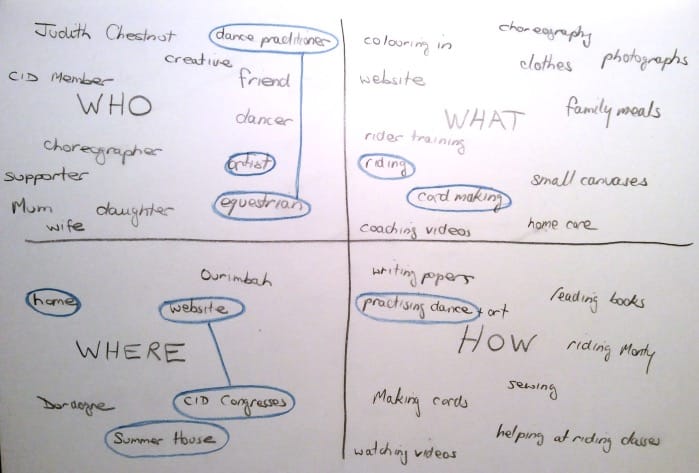 Judith Chestnut
dance practitioner
creative
CID Member
friend
WHO
dancer
choreographer
artist
supporter
equestrian
Mum
daughter
wife
choreography
colouring in
clothes
photographs
website
family meals
WHAT
rider training
riding
small canvases
card making
coaching videos
home care
Ourimbah
home
website
WHERE
Dordogne
CID Congresses
Summer House
writing papers
reading books
practising dance + art
HOW
riding Monty
sewing
Making cards
helping at riding classes
watching videos